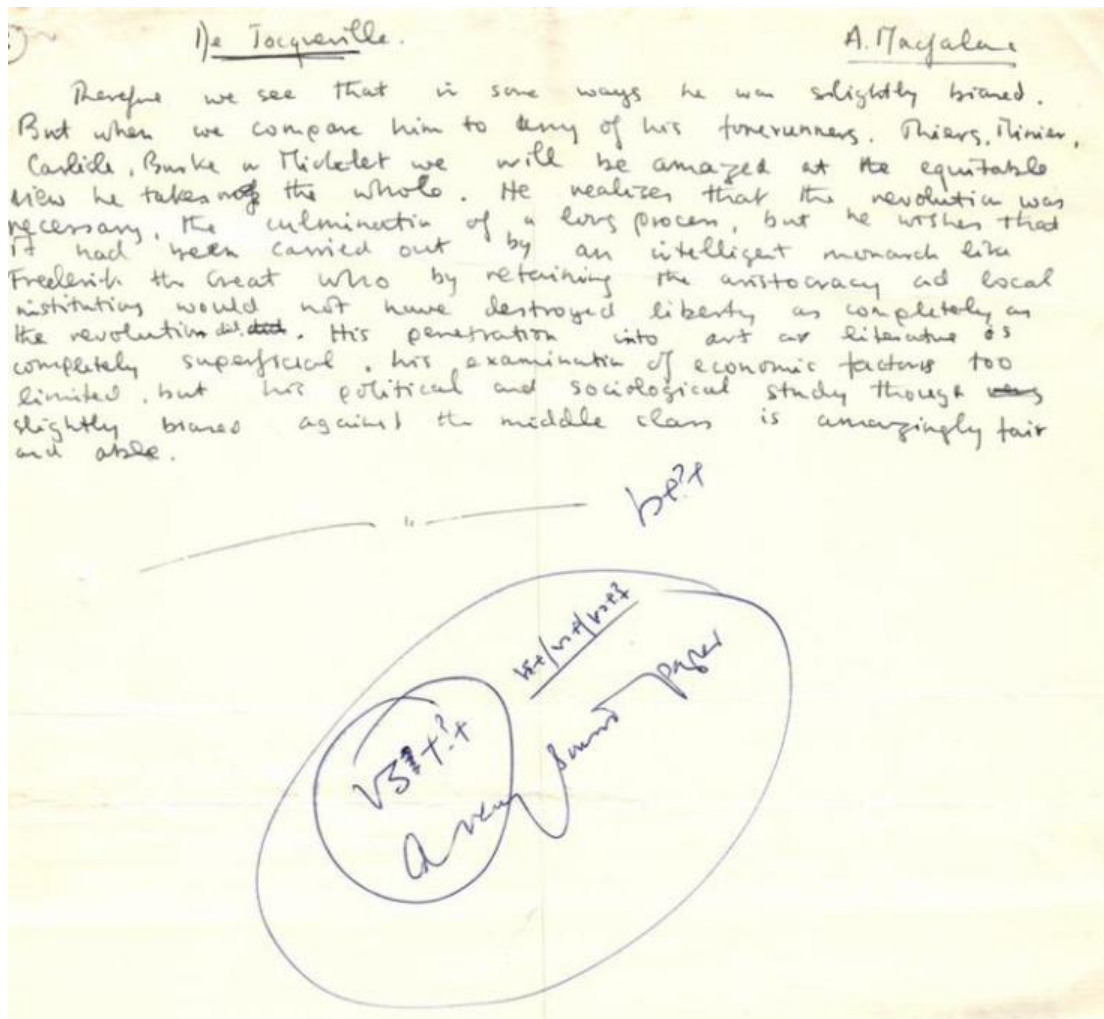 De Tocqueville. A. Macfarlane
Therefore we see that in some ways he was slightly biased.
But when we compare him to any of his forerunners. Thiers, Minier,
Carlisle, Burke or Michelet we will be amazed at the equitable
view he takes of the whole. He realizes that the revolution was
necessary, the culmination of a long process, but he wishes that
it had been carried out by an intelligent monarch like
Frederick the Great who by retaining the aristocracy and local
institutions would not have destroyed liberty as completely as
the revolution did. His penetration into art or literature is
completely superficial, his examination of economic factors too
limited, but his political and sociological study though
slightly biased against the middle class is amazingly fair
and able.
b+?+
a very sound paper